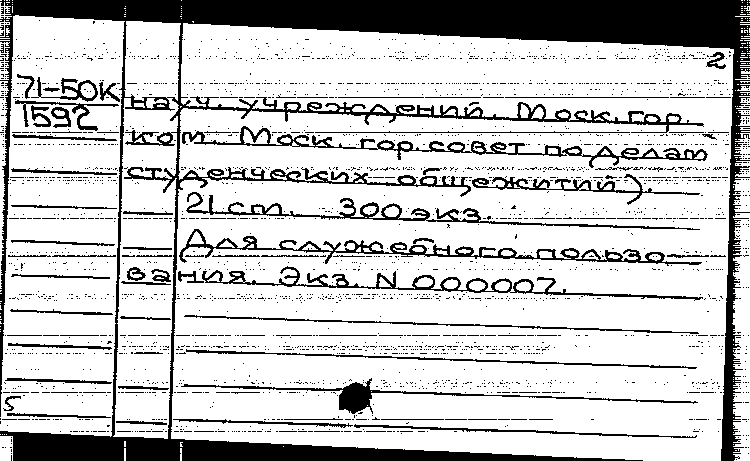 2
71-50К
1592
науч. учреждений. Моск. гор.
ком. Моск. гор. совет по делам
студенческих общежитий).
21 ст. 300 экз.
Для служебного пользо-
вания. Экз. N 000007.
5